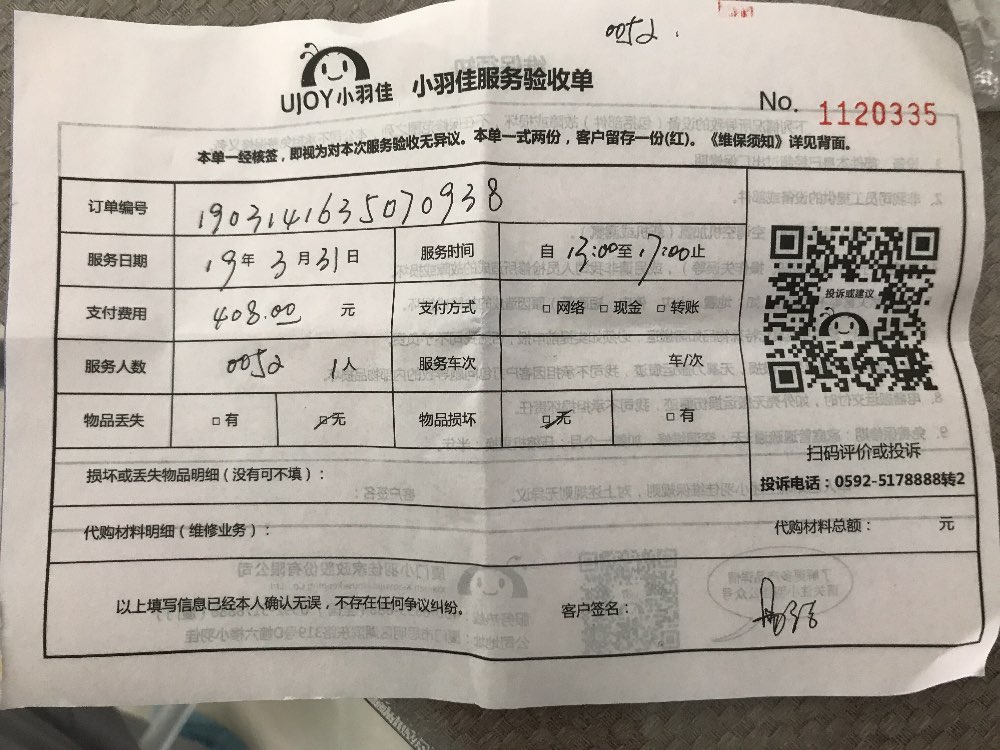 0052
UJOY小羽佳 小羽佳服务验收单
No. 1120335
本单一经核签，即视为对本次服务验收无异议。本单一式两份，客户留存一份(红)。《维保须知》详见背面。
订单编号 1903141635070938
服务日期 19年3月31日 服务时间 自13:00至17:00止
支付费用 408.00 元 支付方式 □网络 □现金 □转账
服务人数 0052 1人 服务车次 车/次
物品丢失 □有 □无 物品损坏 □无 □有
投诉或建议
扫码评价或投诉
投诉电话：0592-5178888转2
损坏或丢失物品明细（没有可不填）：
代购材料明细（维修业务）： 代购材料总额： 元
以上填写信息已经本人确认无误，不存在任何争议纠纷。 客户签名：